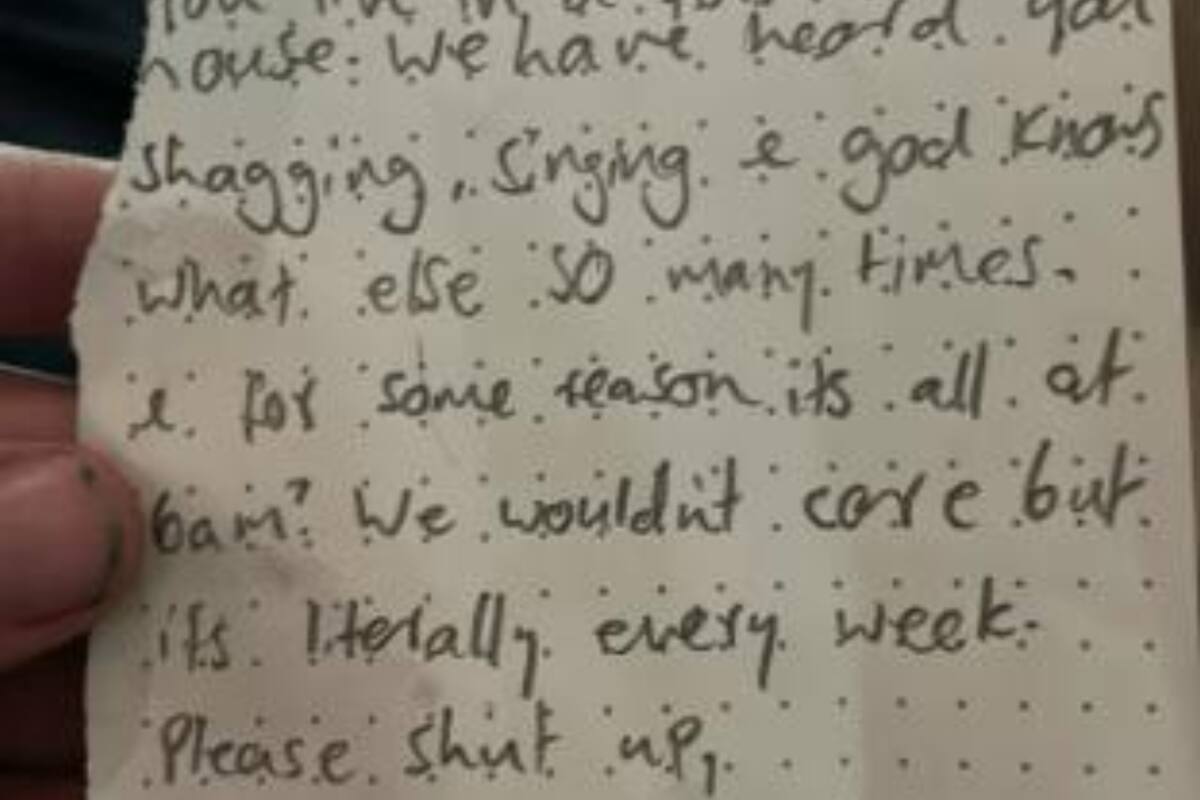 house. We have heard you
shagging, singing & god knows
what else so many times.
& for some reason its all at
6am? We wouldn't care but
it's literally every week.
Please shut up,